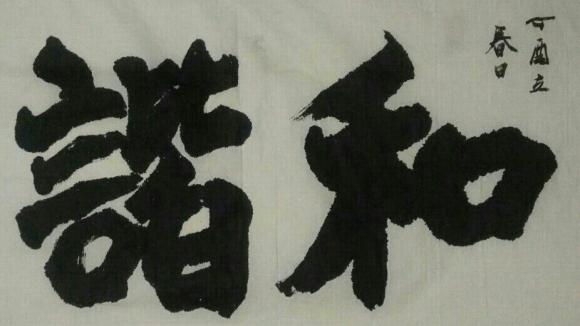 丁酉立
春日
和諧